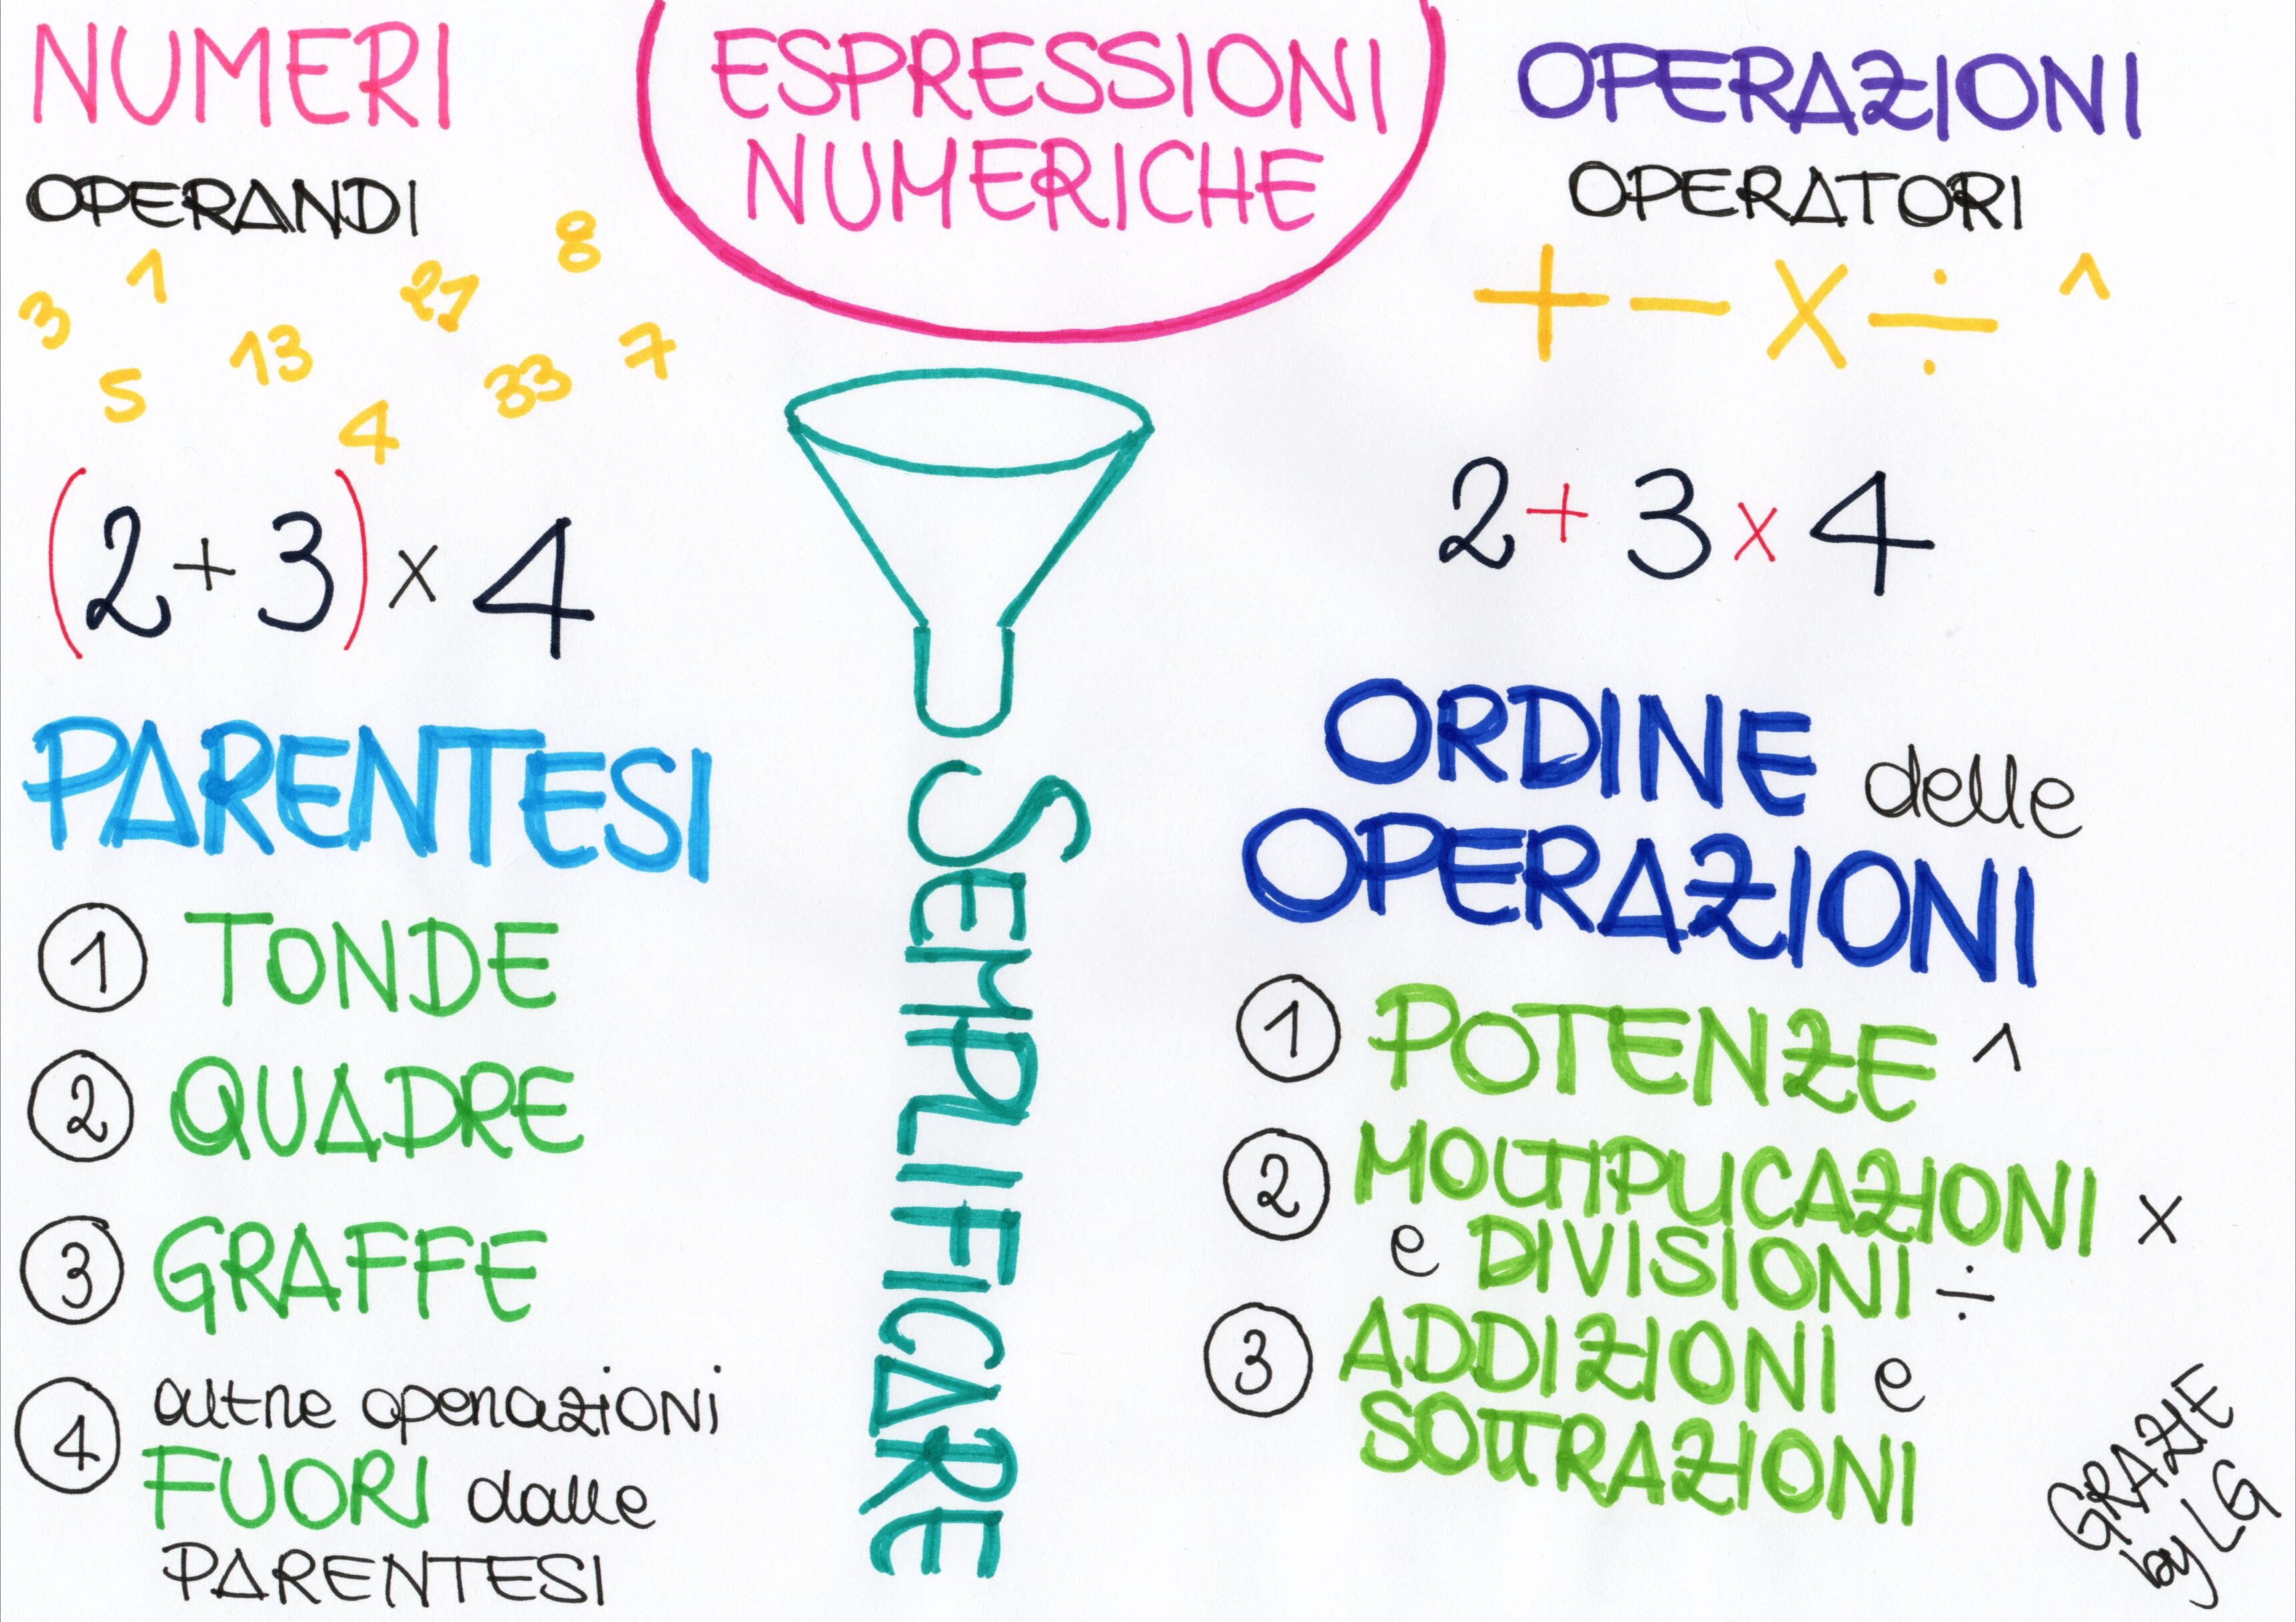 NUMERI
OPERANDI
3 1 21 8
5 13 4 33 7
(2+3)×4
PARENTESI
1 TONDE
2 QUADRE
3 GRAFFE
4 altre operazioni
FUORI dalle
PARENTESI
ESPRESSIONI
NUMERICHE
SEMPLIFICARE
OPERAZIONI
OPERATORI
+ − × ÷ ^
2+3×4
ORDINE delle
OPERAZIONI
1 POTENZE ^
2 MOLTIPLICAZIONI ×
e DIVISIONI ÷
3 ADDIZIONI e
SOTTRAZIONI
GRAZIE
by LG